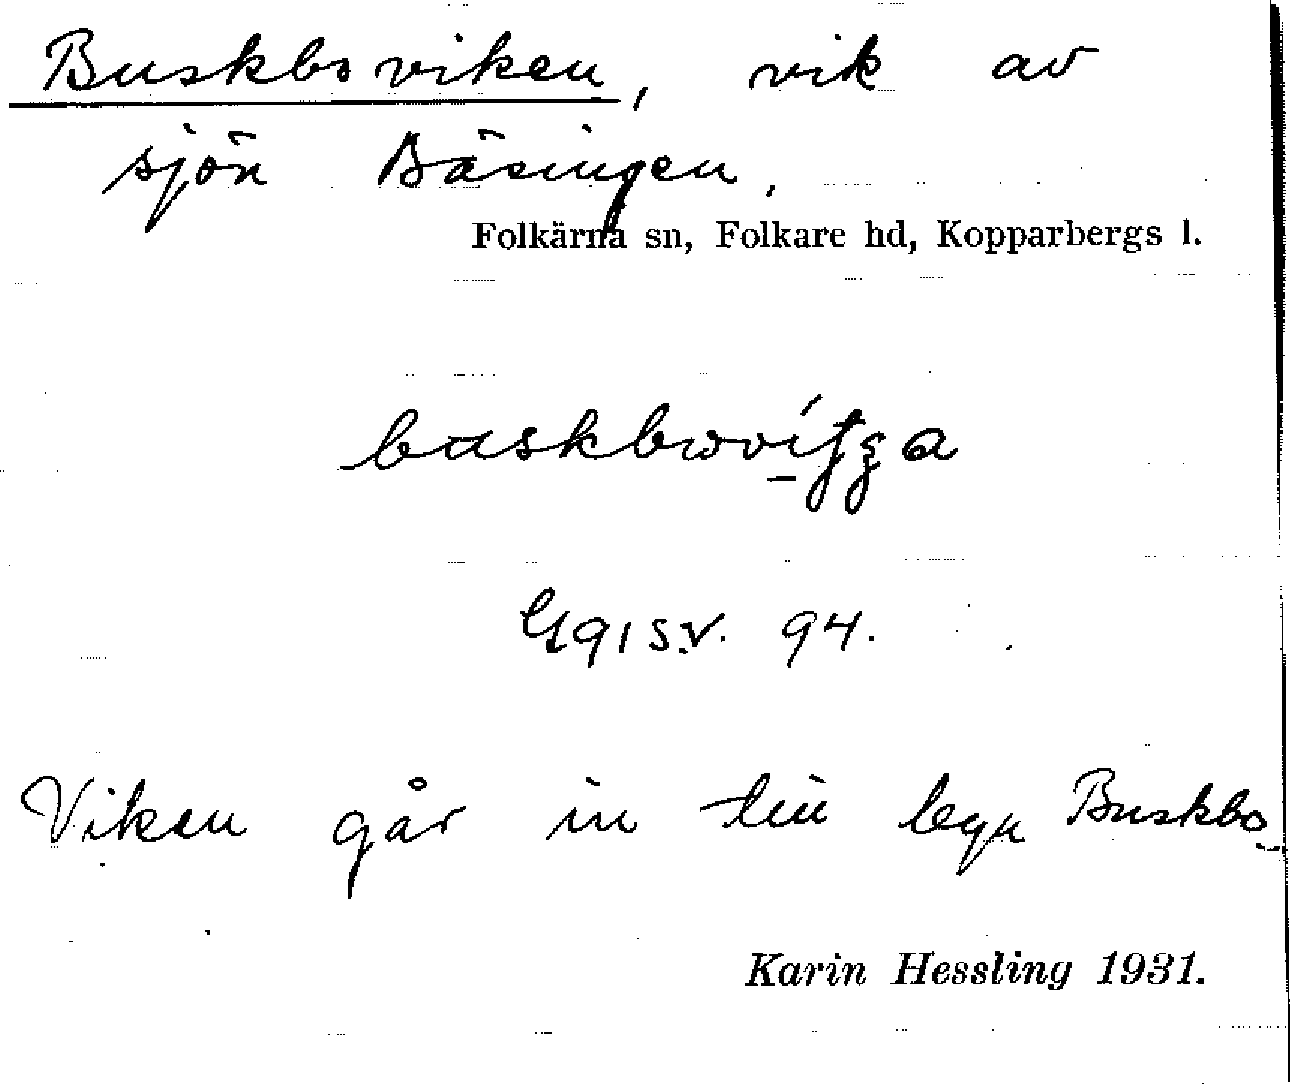 Buskboviken, vik av
sjön Bäsingen.
Folkärna sn, Folkare hd, Kopparbergs l.
94.
Viken går in till byn Buskbo
Karin Hessling 1931.